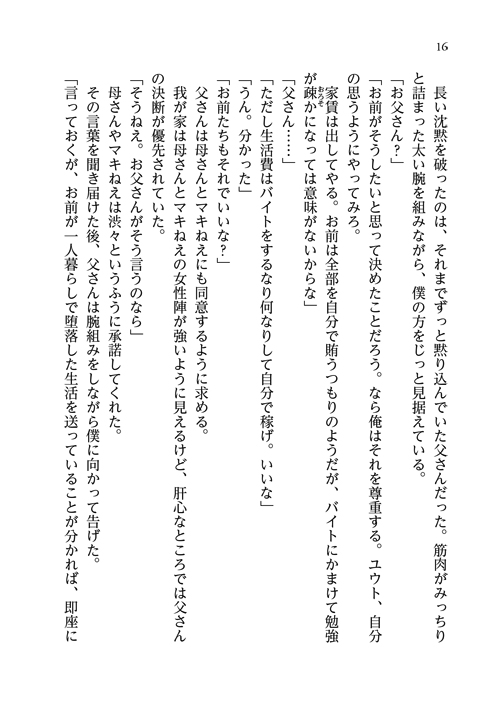 16
長い沈黙を破ったのは、それまでずっと黙り込んでいた父さんだった。筋肉がみっちり
と詰まった太い腕を組みながら、僕の方をじっと見据えている。
「お父さん？」
「お前がそうしたいと思って決めたことだろう。なら俺はそれを尊重する。ユウト、自分
の思うようにやってみろ。
家賃は出してやる。お前は全部を自分で賄うつもりのようだが、バイトにかまけて勉強
が疎かになっては意味がないからな」
「父さん……」
「ただし生活費はバイトをするなり何なりして自分で稼げ。いいな」
「うん。分かった」
「お前たちもそれでいいな？」
父さんは母さんとマキねえにも同意するように求める。
我が家は母さんとマキねえの女性陣が強いように見えるけど、肝心なところでは父さん
の決断が優先されていた。
「そうねえ。お父さんがそう言うのなら」
母さんやマキねえは渋々というふうに承諾してくれた。
その言葉を聞き届けた後、父さんは腕組みをしながら僕に向かって告げた。
「言っておくが、お前が一人暮らしで堕落した生活を送っていることが分かれば、即座に